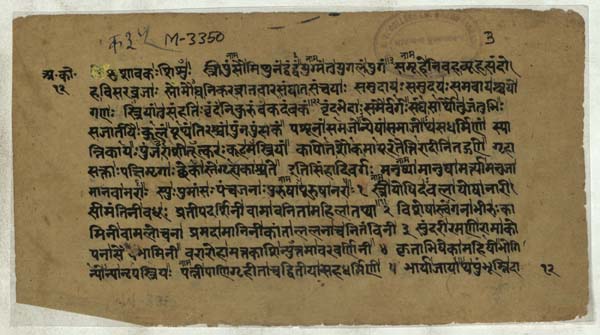 M-3350
३
अ॰ को॰
१२
शावकः शिशुः। स्त्रीपुंसौ मिथुनं द्वंद्वं युग्मं तु युगलं युगं समूहे निवहव्यूहसंदो
हविसरव्रजाः स्तोमौघनिकरव्रातवारसंघातसंचयाः समुदायः समुदयः समवायश्चयो
गणः स्त्रियां तु संहतिर्वृंदं निकुरंबं कदंबकं वृंदभेदाः समैर्वर्गः संघसार्थौ तु जंतुभिः
सजातीयैः कुलं यूथं तिरश्चां पुंनपुंसकं पशूनां समजोन्येषां समाजोथ सधर्मिणां स्या
न्निकायः पुंजराशी तूत्करः कूटमस्त्रियां कापोतशौकमायूरतैत्तिरादीनि तद्गणे गृहा
सक्ताः पक्षिमृगाश्छेकास्ते गृह्यकाश्च ते इति सिंहादिवर्गः मनुष्या मानुषा मर्त्या मनुजा
मानवा नराः स्युः पुमांसः पंचजनाः पुरुषाः पूरुषा नरः १ स्त्री योषिदबला योषा नारी
सीमंतिनी वधूः प्रतीपदर्शिनी वामा वनिता महिला तथा २ विशेषास्त्वंगना भीरुः का
मिनी वामलोचना प्रमदा मानिनी कांता ललना च नितंबिनी ३ सुंदरी रमणी रामा को
पना सैव भामिनी वरारोहा मत्तकाशिन्युत्तमा वरवर्णिनी ४ कृताभिषेका महिषी भोगि
न्योन्या नृपस्त्रियः पत्नी पाणिगृहीता च द्वितीया सहधर्मिणी ॥ भार्या जायाथ पुंभूम्नि दा १२